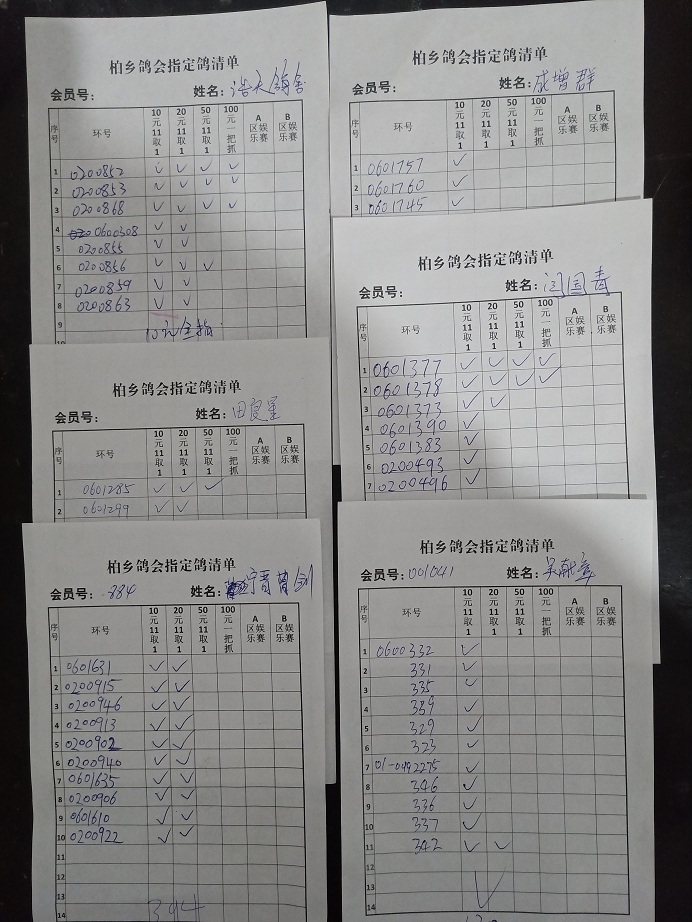 柏乡鸽会指定鸽清单
会员号: 姓名: 浩天鸽舍
序号 环号 10元11取1 20元11取1 50元11取1 100元一把抓 A区娱乐赛 B区娱乐赛
1 0200852 ✓ ✓ ✓ ✓
2 0200853 ✓ ✓ ✓ ✓
3 0200868 ✓ ✓ ✓ ✓
4 0600308 ✓ ✓
5 0200855 ✓ ✓
6 0200856 ✓ ✓ ✓
7 0200859 ✓ ✓
8 0200863 ✓ ✓
9 10元全指
10
柏乡鸽会指定鸽清单
会员号: 姓名: 成增群
序号 环号 10元11取1 20元11取1 50元11取1 100元一把抓 A区娱乐赛 B区娱乐赛
1 0601757 ✓
2 0601760 ✓
3 0601745 ✓
柏乡鸽会指定鸽清单
会员号: 姓名: 闫国春
序号 环号 10元11取1 20元11取1 50元11取1 100元一把抓 A区娱乐赛 B区娱乐赛
1 0601377 ✓ ✓ ✓ ✓
2 0601378 ✓ ✓ ✓ ✓
3 0601373 ✓ ✓
4 0601390 ✓
5 0601383 ✓
6 0200493 ✓
7 0200496 ✓
柏乡鸽会指定鸽清单
会员号: 姓名: 田良星
序号 环号 10元11取1 20元11取1 50元11取1 100元一把抓 A区娱乐赛 B区娱乐赛
1 0601285 ✓ ✓ ✓
2 0601299 ✓ ✓
柏乡鸽会指定鸽清单
会员号: 884 姓名: 宁晋
序号 环号 10元11取1 20元11取1 50元11取1 100元一把抓 A区娱乐赛 B区娱乐赛
1 0601631 ✓ ✓
2 0200915 ✓ ✓
3 0200946 ✓ ✓
4 0200913 ✓ ✓
5 0200902 ✓ ✓
6 0200940 ✓ ✓
7 0601635 ✓ ✓
8 0200906 ✓ ✓
9 0601610 ✓ ✓
10 0200922 ✓ ✓
11
12
13
14 394
柏乡鸽会指定鸽清单
会员号: 001041 姓名: 吴献章
序号 环号 10元11取1 20元11取1 50元11取1 100元一把抓 A区娱乐赛 B区娱乐赛
1 0600332 ✓
2 331 ✓
3 335 ✓
4 339 ✓
5 329 ✓
6 323 ✓
7 01-0492275 ✓
8 346 ✓
9 336 ✓
10 337 ✓
11 342 ✓ ✓
12
13
14